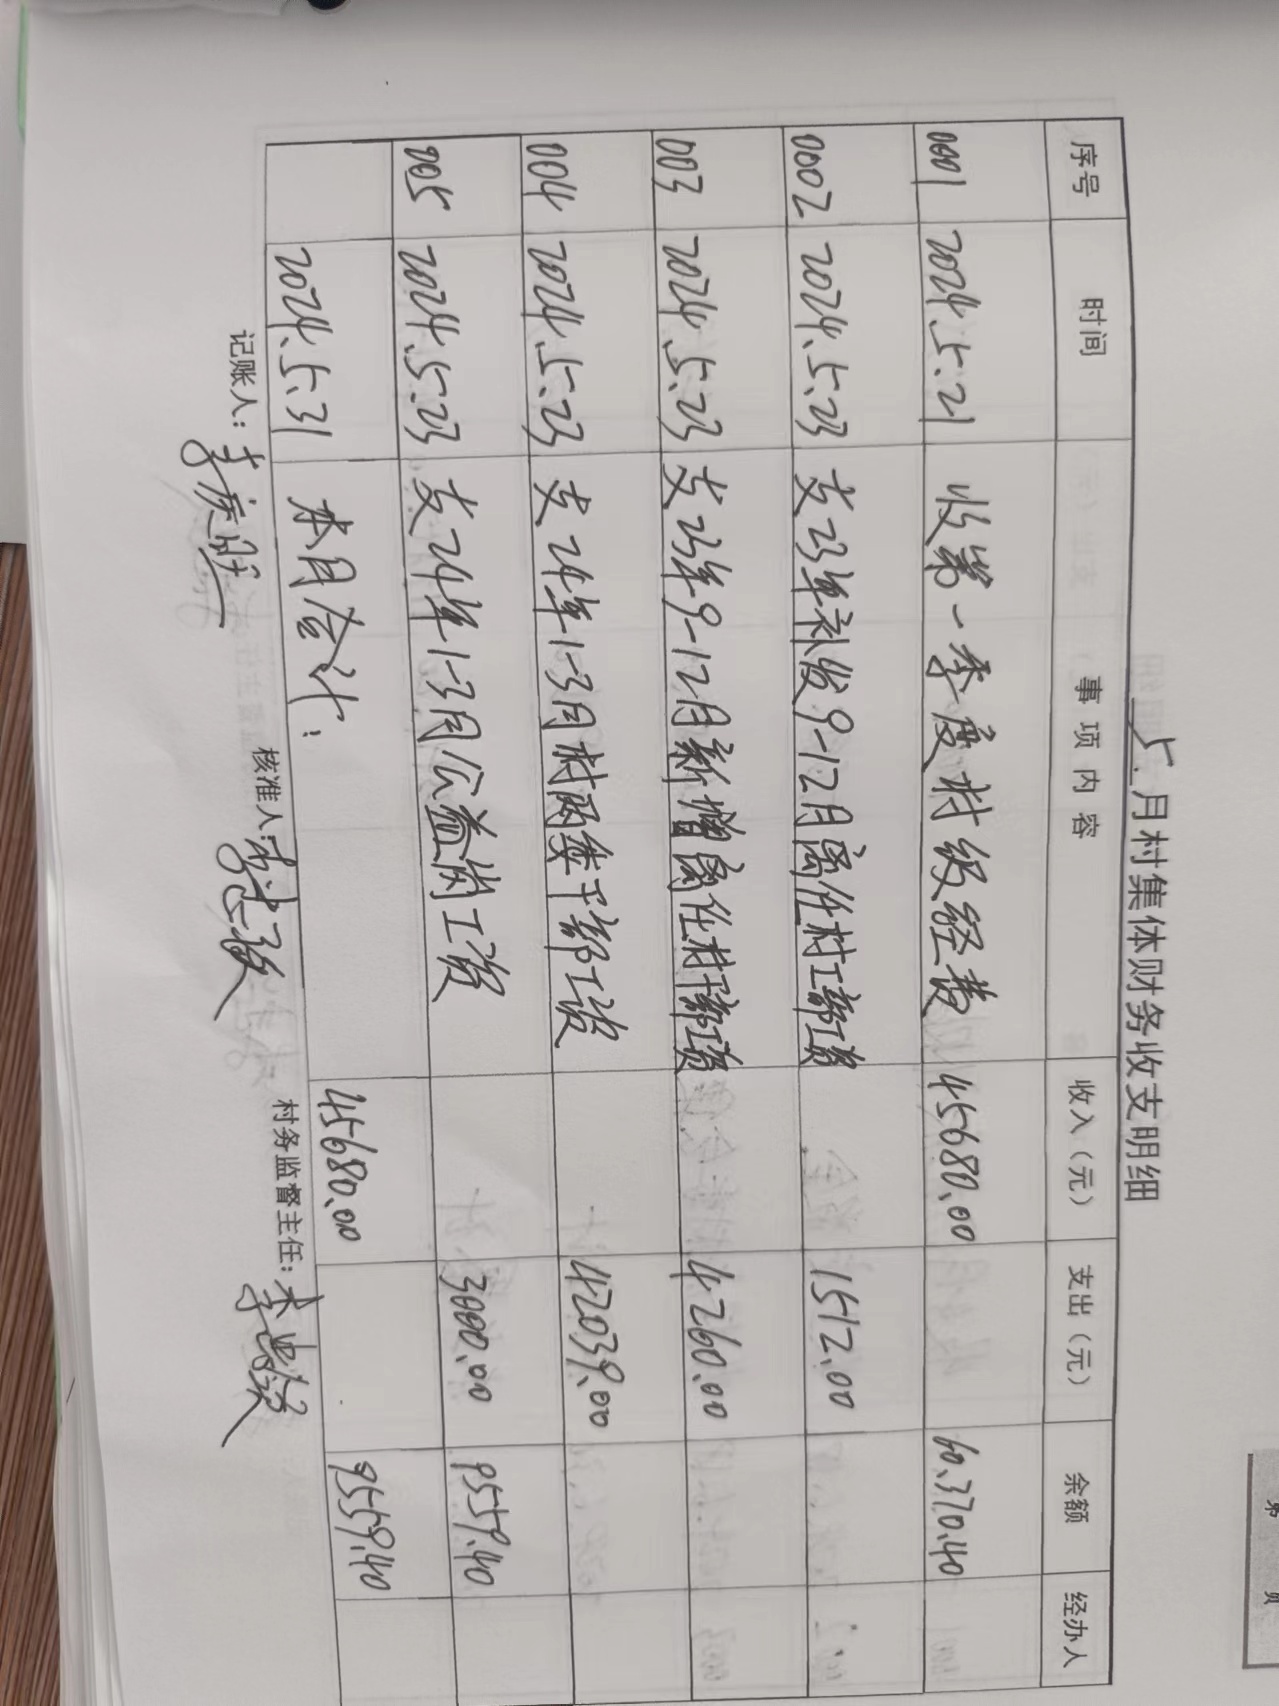 5月村集体财务收支明细
序号 时间 事项内容 收入（元） 支出（元） 余额 经办人
0001 2024.5.21 收第一季度村级经费 45680.00 60.370.40
0002 2024.5.23 支23年补发9-12月离任村工部工资 1512.00
003 2024.5.23 支23年9-12月新增离任村干部工资 4260.00
004 2024.5.23 支24年1-3月村两委干部工资 42039.00
005 2024.5.23 支24年1-3月公益岗工资 3000.00 9559.40
2024.5.31 本月合计： 45680.00 9559.40
记账人： 核准人： 村务监督主任：
第 页